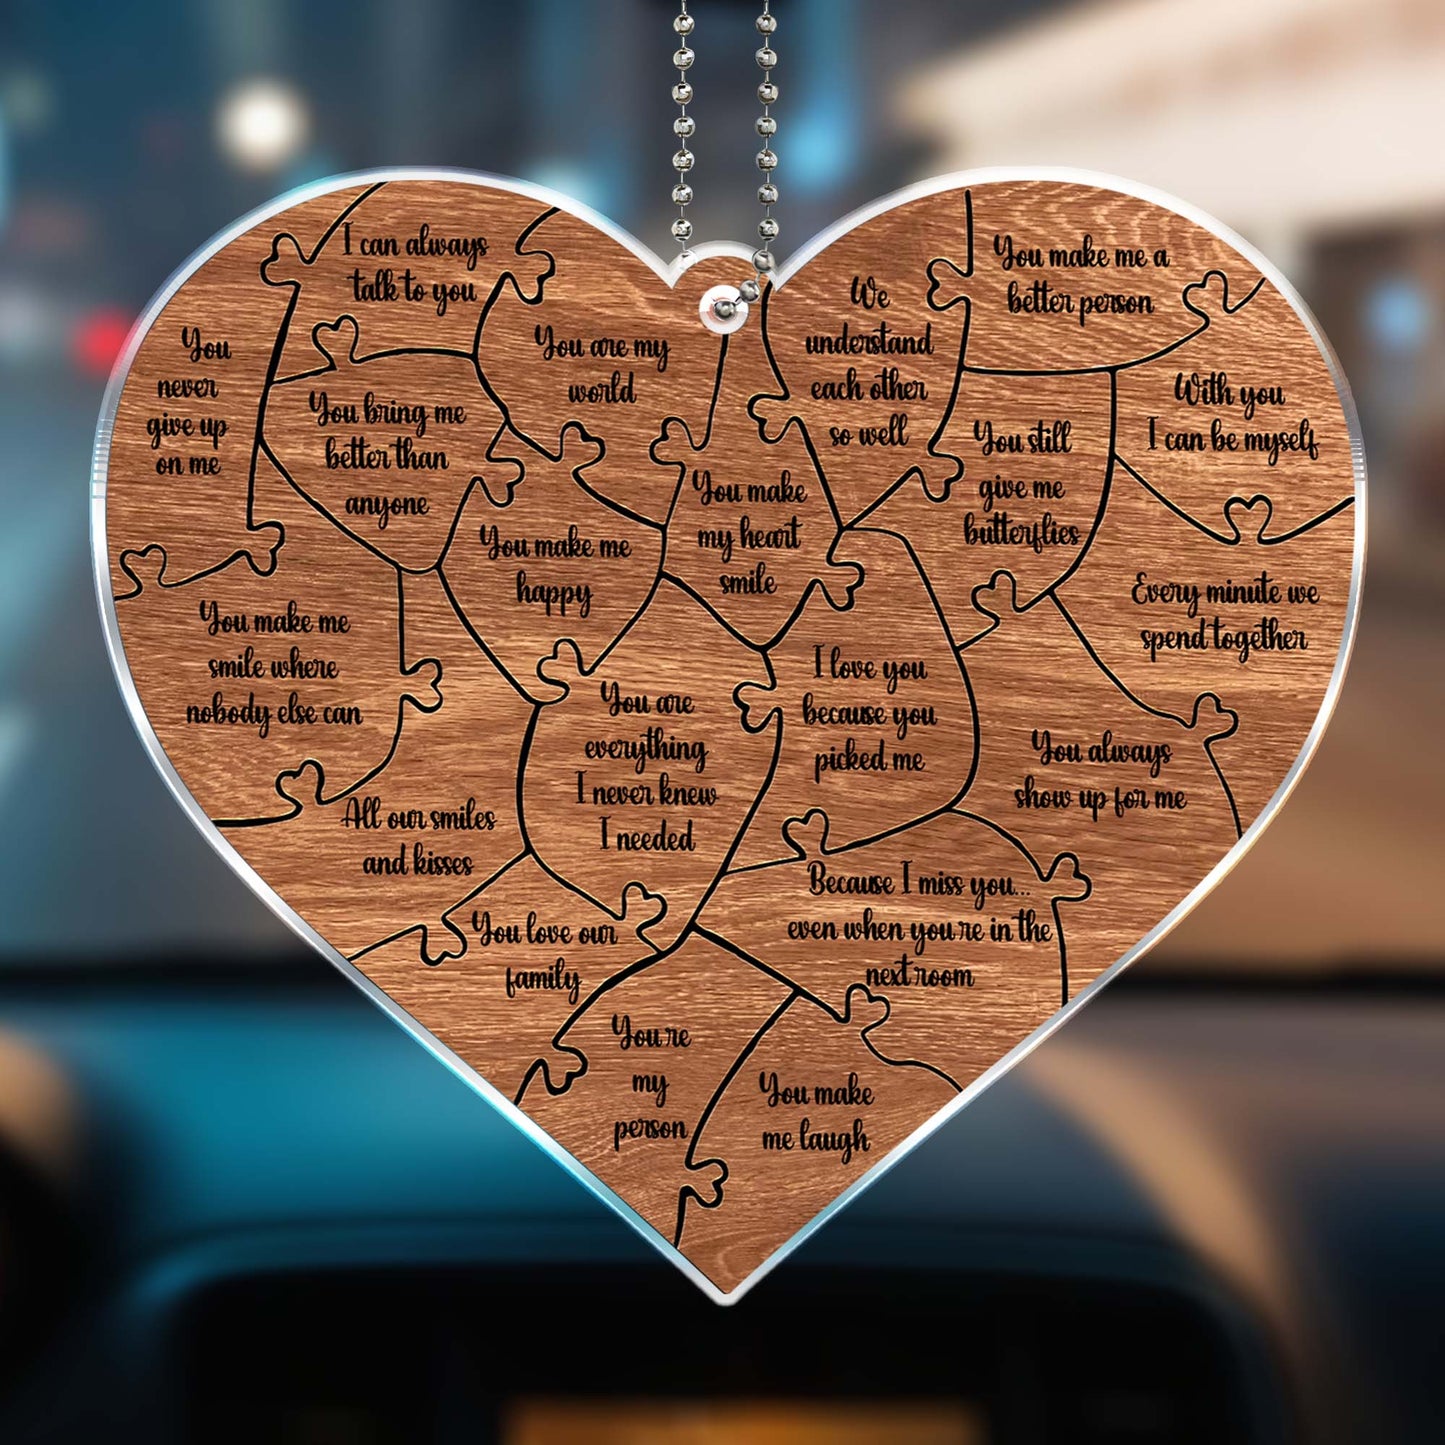 I can always
talk to you
You
never
give up
on me
You bring me
better than
anyone
You are my
world
We
understand
each other
so well
You make me a
better person
With you
I can be myself
You still
give me
butterflies
You make
my heart
smile
You make me
happy
You make me
smile where
nobody else can
Every minute we
spend together
I love you
because you
picked me
You are
everything
I never knew
I needed
You always
show up for me
All our smiles
and kisses
Because I miss you...
even when you're in the
next room
You love our
family
You're
my
person
You make
me laugh